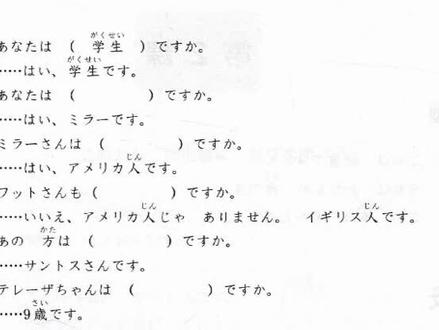 あなたは （ 学生 ）ですか。
……はい、学生です。
あなたは （　　　　）ですか。
……はい、ミラーです。
ミラーさんは （　　　　）ですか。
……はい、アメリカ人です。
ワットさんも （　　　　）ですか。
……いいえ、アメリカ人じゃ ありません。 イギリス人です。
あの 方は （　　　　）ですか。
……サントスさんです。
テレーザちゃんは （　　　　）ですか。
……9歳です。